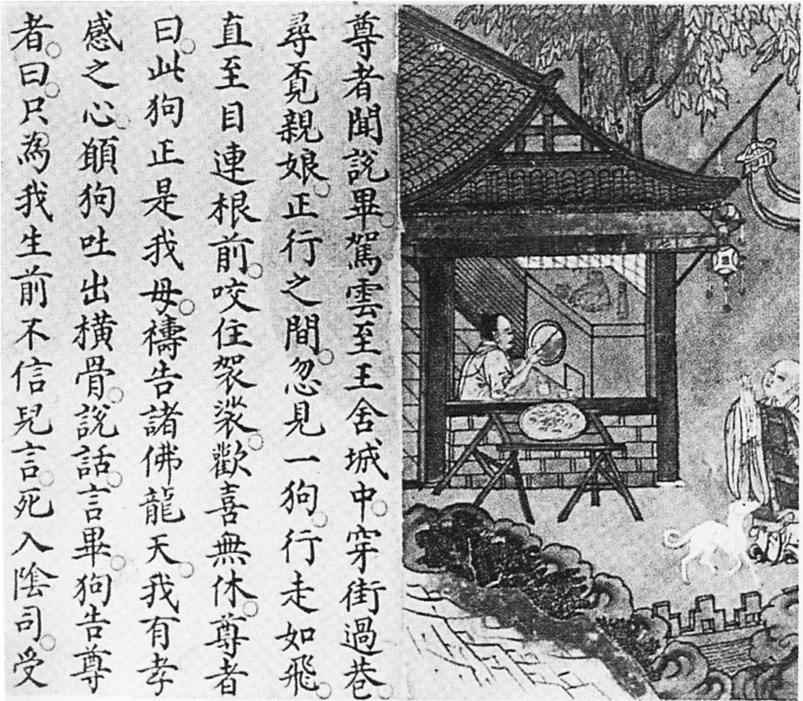 尊者聞說畢。駕雲至王舍城中。穿街過巷。
尋覔親娘。正行之間。忽見一狗。行走如飛。
直至目連根前。咬住袈裟。歡喜無休。尊者
曰。此狗正是我母。禱告諸佛龍天。我有孝
感之心。願狗吐出橫骨。說話。言畢。狗告尊
者。曰。只為我生前不信兒言。死入陰司。受